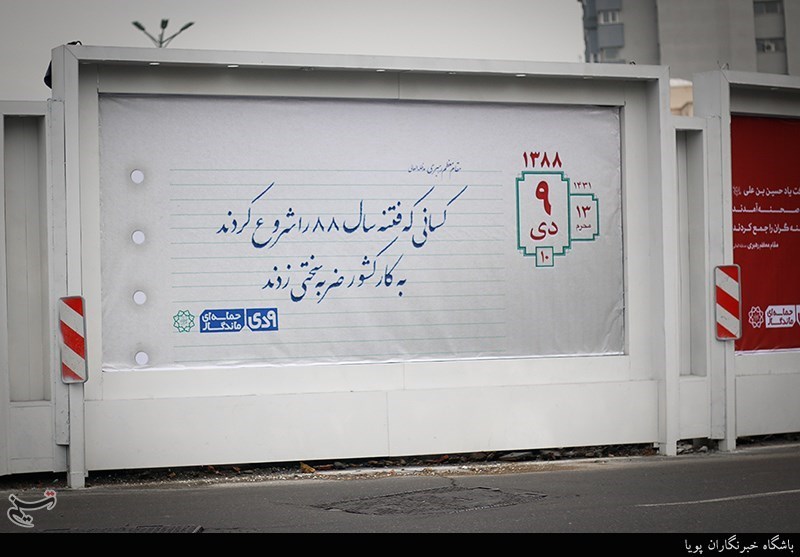 مقام معظم رهبری مدظله‌العالی
کسانی که فتنه سال ۸۸ را شروع کردند
به کار کشور ضربه سختی زدند
۱۳۸۸
۹
دی
۱۰
۱۴۳۱
۱۳
محرم
۹دی
حماسه‌ای
ماندگار
ت یاد حسین بن علی
صحنه آمدند
نه گران را جمع کردند
مقام معظم رهبری
حماسه‌ای
ماندگار
تسنیم
باشگاه خبرنگاران پویا